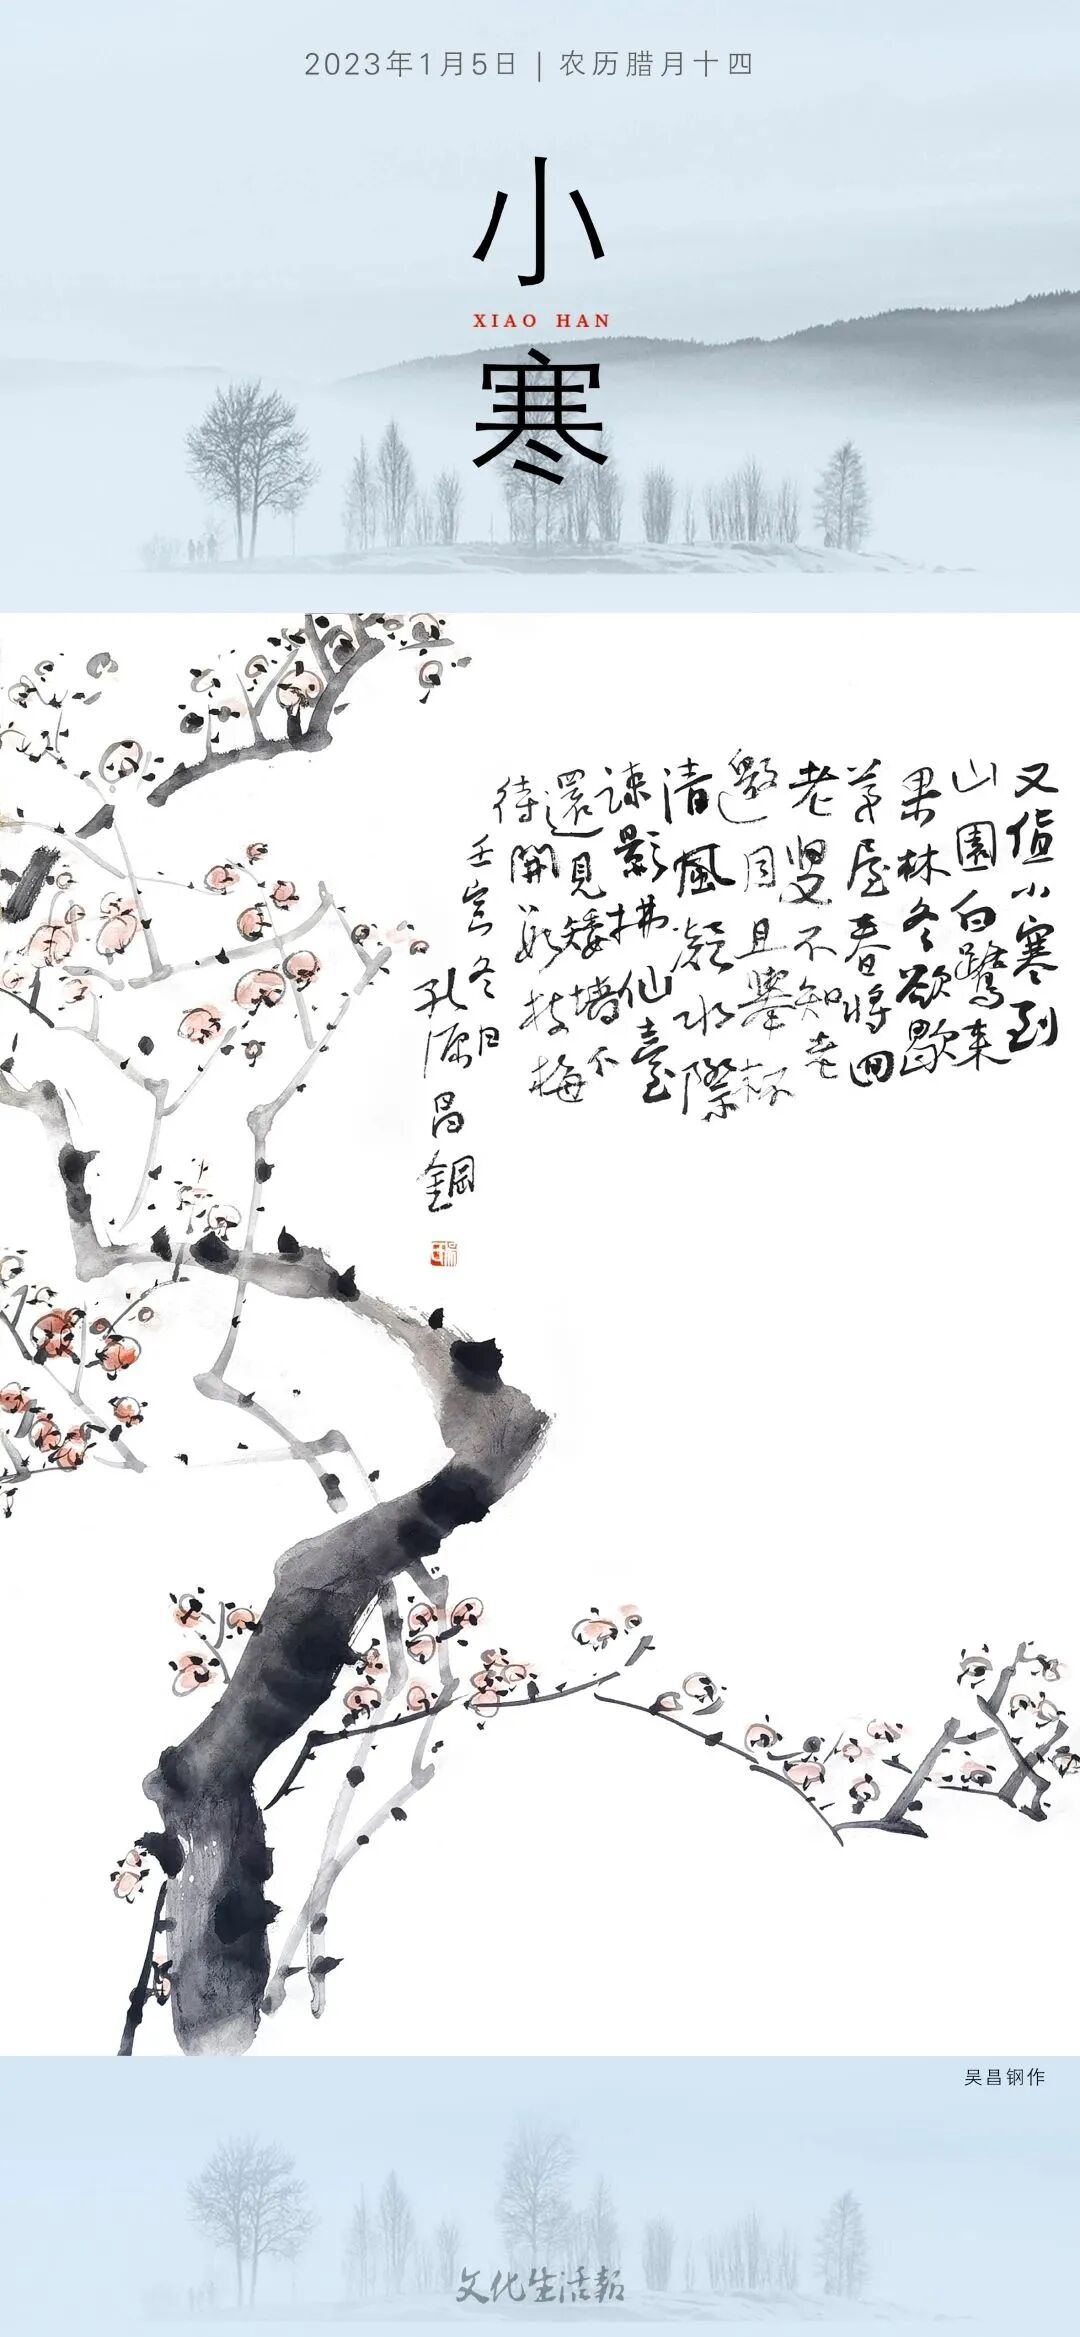 2023年1月5日 | 农历腊月十四
小
XIAO HAN
寒
又值小寒到
山園白鷺来
果林冬欲歇
茅屋春將回
老叟不知老
邀月且舉杯
清風凝水際
疎影拂仙臺
還見矮墙下
待開數枝梅
壬寅冬日
孔源昌鋼
吴昌钢作
文化生活報